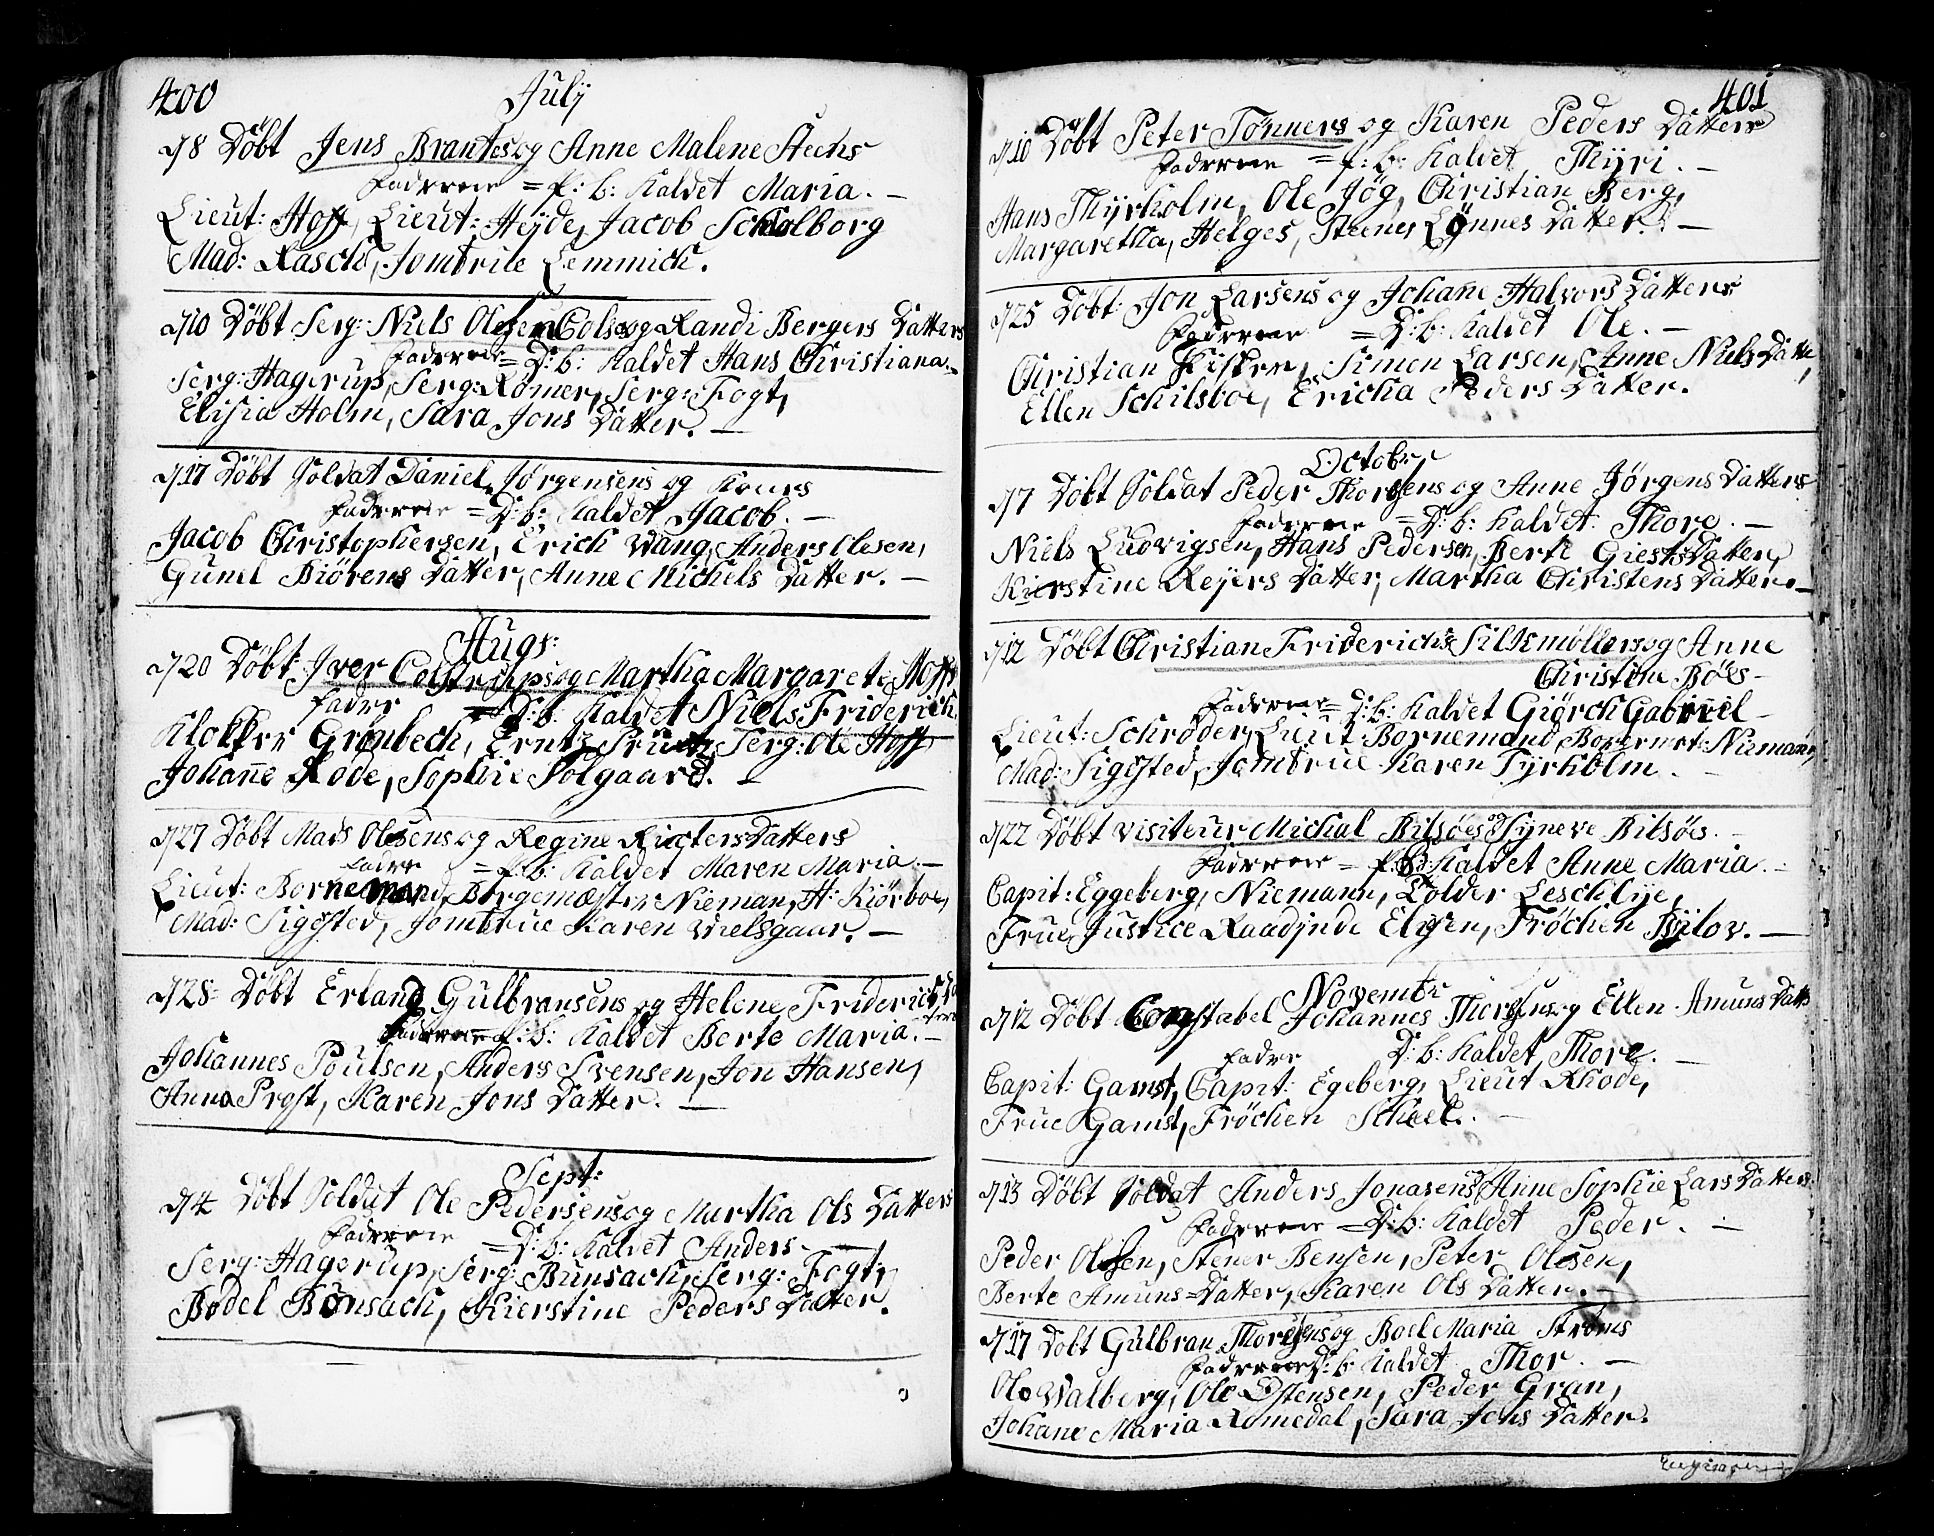 400 July
d/8 Döbt Jens Brantes og Anne Malene Steens
Fadderne = P: b: Kaldet Maria. —
Lieut: Hoff, Lieut: Heyde, Jacob Scholborg
Mad: Rasch, Jomfrue Lemmich.
d/10 Döbt Serg: Niels Olesen Cols og Randi Bergers Datters
Fadderne = D: b: Kaldet Hans Christian. —
Serg: Hagerup, Serg: Romer, Serg: Fogt,
Elisia Holm, Sara Jons Datter. —
d/17 Döbt Soldat Daniel Jørgensens og Kones
Fadderne = D: b: Kaldet Jacob. —
Jacob Christophersen, Erich Wang, Anders Olesen,
Gunel Biörens Datter, Anne Michels Datter. —
Augs:
d/20 Döbt Iver Colstrups og Martha Margarete Hoffs
Fadder D: b: Kaldet Niels Friderich
Klokker Grönbech, Serg: Ole Hoff
Johan̄e Rode, Sophie Solgaard. —
d/27 Döbt Mads Olesens og Regine Ricters Datters
Fadder = P: b: Kaldet Maren Maria. —
Lieut: Bornemand, Borgemæster Nieman, H: Kiörboe,
Mad: Sigsted, Jomfrue Karen Wielsgaar. —
d/28 Döbt Erland Gulbransens og Helene Friderichs Datters
Fadderne P: b: Kaldet Berte Maria. —
Johannes Poulsen, Anders Svensen, Jon Hansen,
Anna Prost, Karen Jons Datter. —
Sept:
d/4 Döbt Soldat Ole Pedersens og Martha Ols Datters
Fadderne = D: b: Kaldet Anders —
Serg: Hagerup, Serg: Bunsach, Serg: Fogt,
Bodel Bonsach, Kierstine Peders Datter.
401
d/10 Döbt Peter Tönners og Karen Peders Datters
Fadderne = P: b: Kaldet Thyri. —
Hans Thyrholm, Ole Jög, Christian Berg,
Margaretha, Helges, Steenes Lönnes Datter. —
d/25 Döbt Jon Larsens og Johan̄e Halvors Datters
Fadderne = D: b: Kaldet Ole. —
Christian, Simen Larsen, Anne Niels Datter,
Ellen Schilsboe, Ericha Peders Datter.
Octobr
d/7 Döbt Soldat Peder Thorsens og Anne Jörgens Datters
Fadderne = D: b: Kaldet Thore. —
Niels Ludvigsen, Hans Pedersen, Berte Giests Datter,
Kierstine Reyers Datter, Martha Christens Datter. —
d/12 Döbt Christian Friderichs Siltsmöllers og Anne
Christine Böes —
Fadderne = D: b: Kaldet Giörch Gabriel —
Lieut: Schröder, Lieut: Bornemand, Borgermest: Niemann,
Mad: Sigsted, Jomfrue Karen Tyrholm. —
d/22 Döbt Visiteur Michal Bilsöes og Syneve Bilsöes. —
Fadderne = P: b: Kaldet Anne Maria. —
Capit: Eggeberg, Niemann, Tolder Leschlye,
Frue Justice Raadinde Elvsen, Fröchen Bÿlov. —
Novembr
d/12 Döbt Constabel Johannes Thorsens og Ellen Amuns Datts
Fadder D: b: Kaldet Thore. —
Capit: Gamst, Capit: Egeberg, Lieut Rhode,
Frue Gamst, Fröchen Scheel. —
d/13 Döbt Soldat Anders Jonasens Anne Sophie Lars Datters
Fadderne = D: b: Kaldet Peder. —
Peder Olesen, Stener Bensen, Peter Olesen,
Berte Amuns=Datter, Karen Ols Datter.
d/17 Döbt Gulbran Thoresens og Boel Maria Ströms
Fadderne D: b: Kaldet Thor. —
Ole Walberg, Ole Ostensen, Peder Gran,
Johane Maria Romedal, Sara Jens Datter.